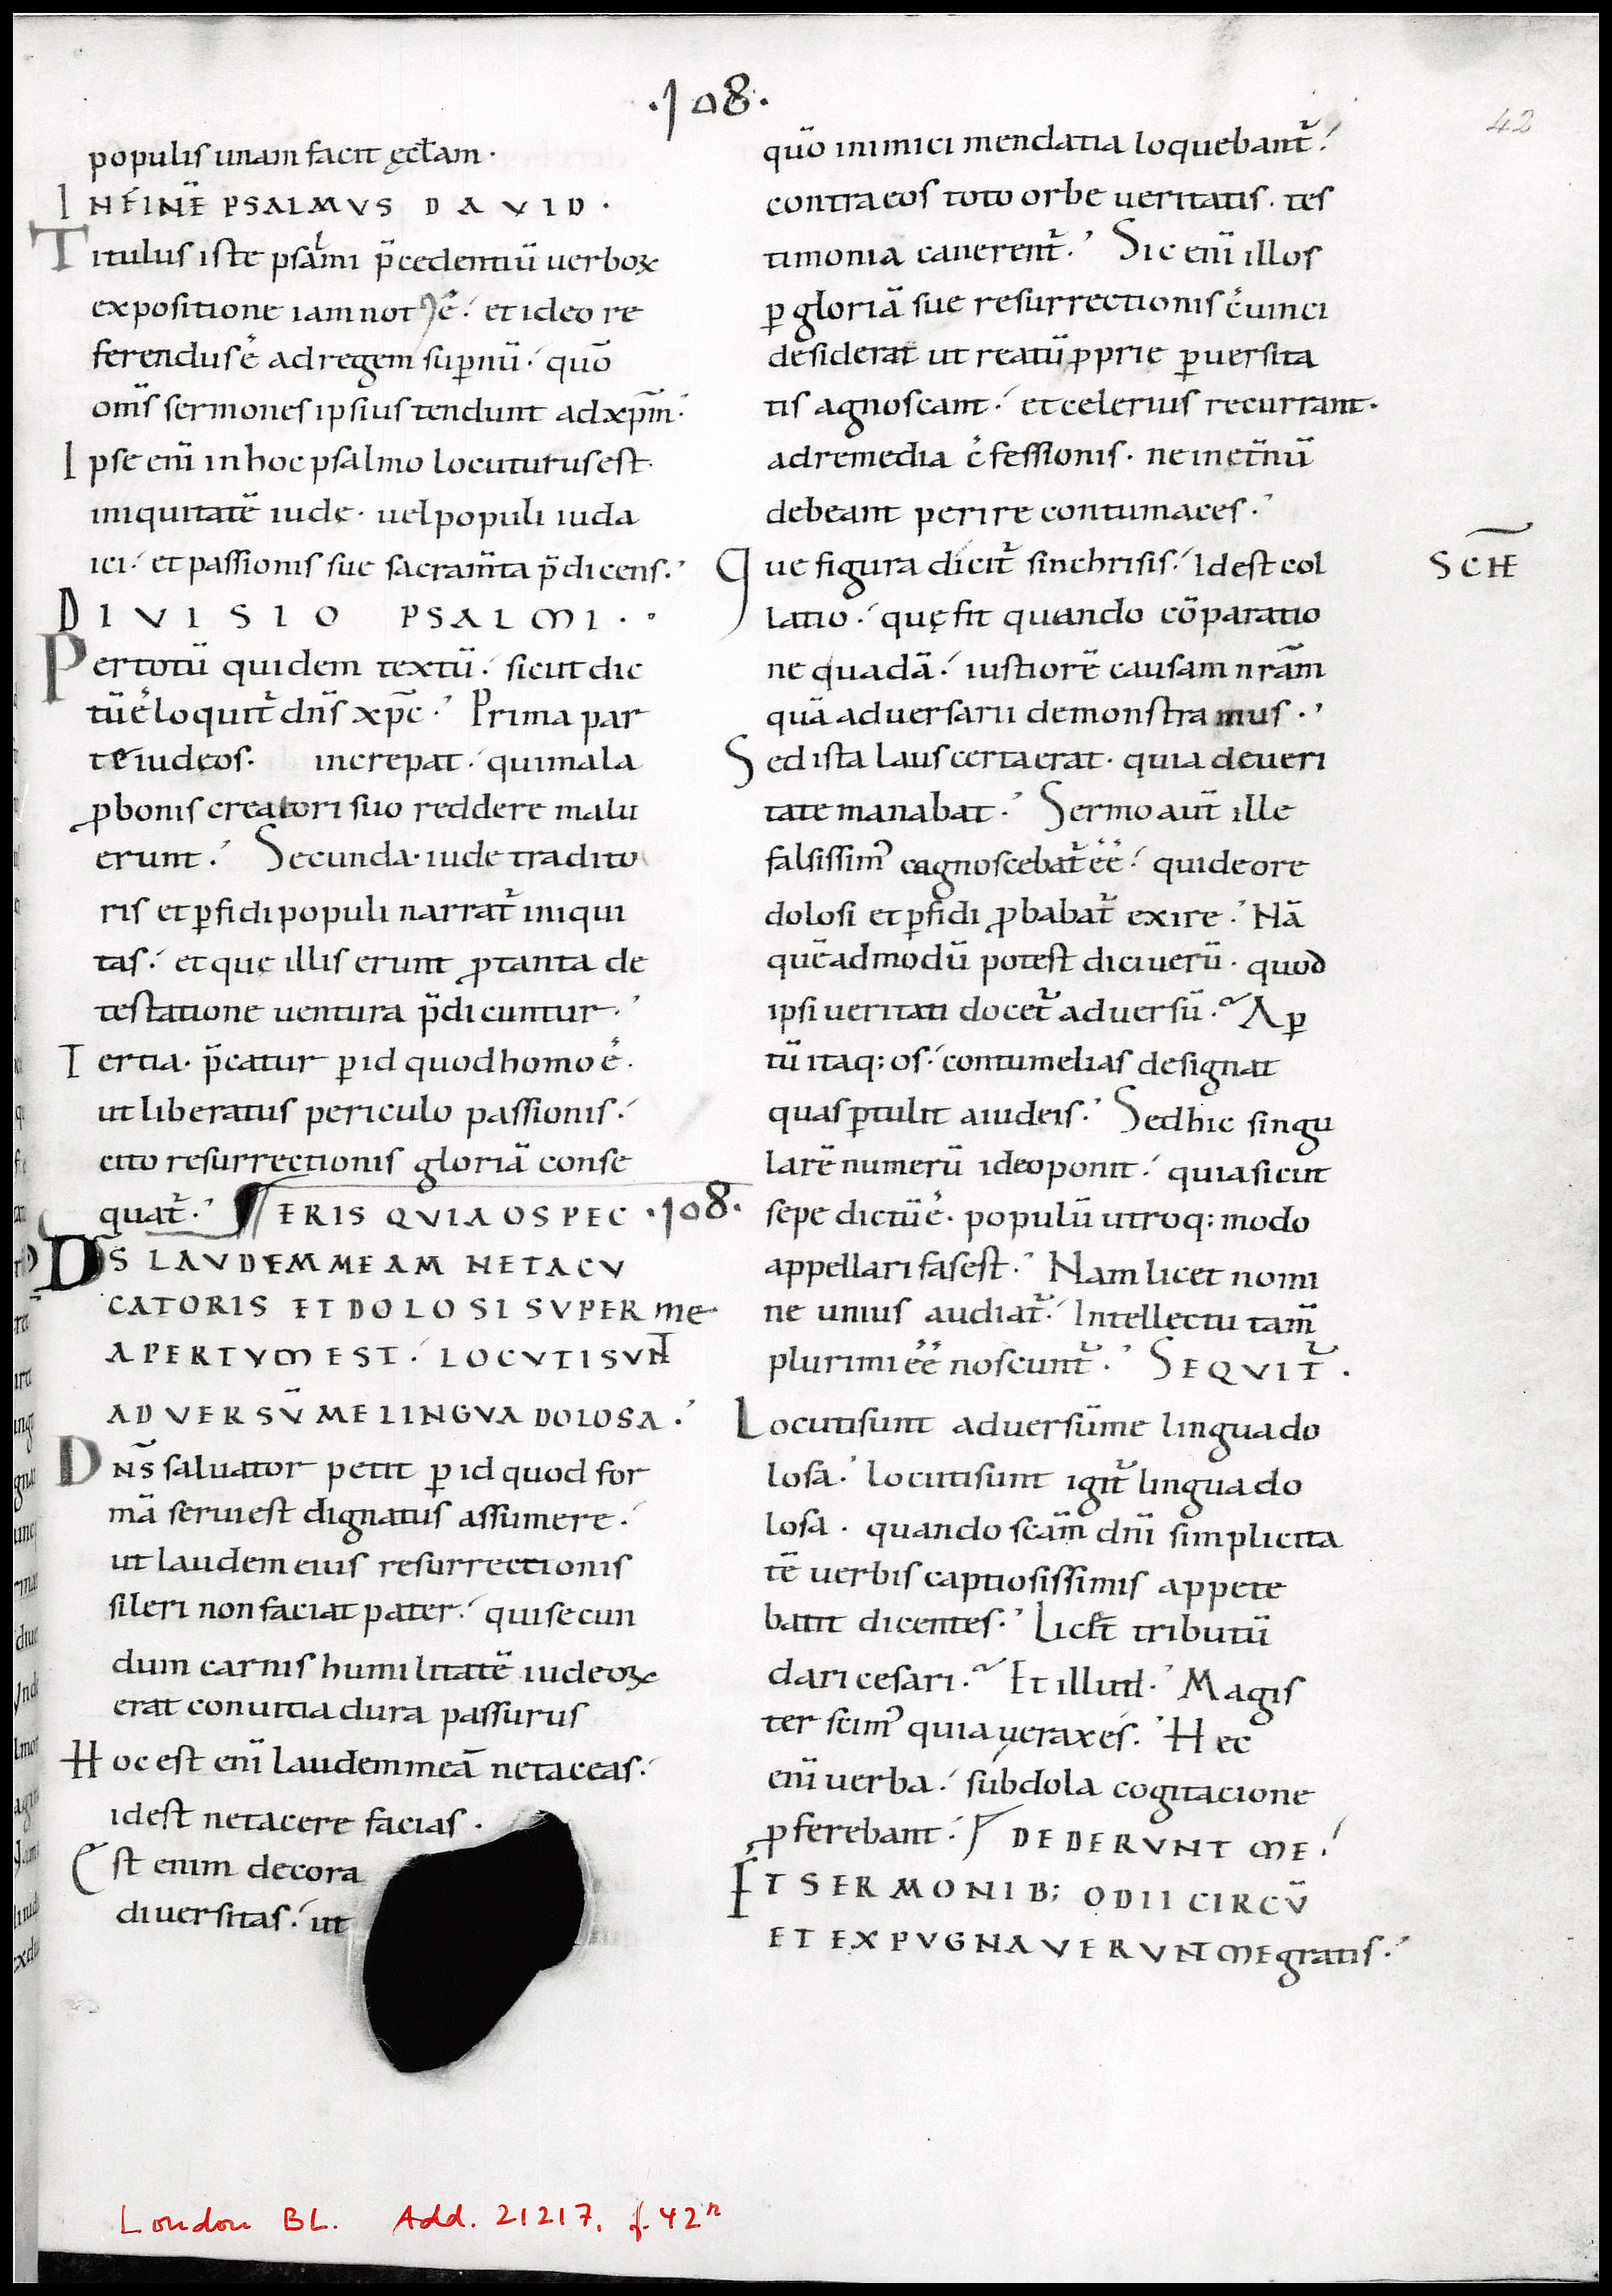 ·108·
42
populis unam facit ęcl̄am·
IN FINĒ PSALMVS DAVID·
Titulus iste psal̄mi p̄cedentiū uerboꝝ
expositione iam not᾿ ē·́ et ideo re
ferendus ē ad regem sup̲nū·́ quō
om̄s sermones ipsius tendunt ad xp̄m·́
Ipse eni̅ in hoc psalmo locuturus est·
iniquitatē iudę· uel populi iuda
ici·́ et passionis sue sacram̄ta p̄dicens·᾿
DIVISIO PSALMI··
Per totū quidem textū·́ sicut dic
tū ē loquit᷑ dn̄s xp̄c·᾿ Prima par
te iudęos· increpat·́ qui mala
ꝓ bonis creatori suo reddere malu
erunt·́ Secunda· iude tradito
ris et ꝑfidi populi narrat᷑ iniqui
tas·́ et quę illis erunt ꝓ tanta de
testatione uentura p̄dicuntur·᾿
Tertia· p̄catur ꝑ id quod homo ē·
ut liberatus periculo passionis·́
cito resurrectionis gloriā conse
quat᷑·᾿ ¶ ERIS QVIA OS PEC ·108·
DS̄ LAVDEM MEAM NE TACV
CATORIS ET DOLOSI SVPER me
APERTVM EST·́ LOCVTI SVNT
ADVERSV̄ ME LINGVA DOLOSA·᾿
DN̄S saluator petit ꝑ id quod for
mā serui est dignatus assumere·́
ut laudem eius resurrectionis
sileri non faciat pater·́ qui secun
dum carnis humilitatē iudeoꝝ
erat conuitia dura passurus
Hoc est eni̅ laudem meā ne taceas·́
id est ne tacere facias·
Est enim decora
diuersitas·́ ut
quō inimici mendatia loquebant᷑·́
contra eos toto orbe ueritatis· tes
timonia canerent᷑·᾿ Sic eni̅ illos
ꝑ gloriā sue resurrectionis c̄uinci
desiderat ut reatū ꝓprie ꝑuersita
tis agnoscant·́ et celerius recurrant·
ad remedia c̄fessionis· ne in et̄nū
debeant perire contumaces·᾿
Que figura dicit᷑ sinchrisis·́ Id est col
SCHE̅
latio·́ quę fit quando cōparatio
ne quadā·́ iustiorē causam nr̄am
quā aduersarii demonstramus·᾿
Sed ista laus certa erat· quia de ueri
tate manabat·᾿ Sermo aut̄ ille
falsissim᾿ cagnoscebat᷑ ēē·́ qui de ore
dolosi et ꝑfidi ꝓbabat᷑ exire·᾿ Nā
quēadmodū potest dici uerū· quod
ipsi ueritati docet᷑ aduersū·~ Aꝑ
tū itaq; os·́ contumelias designat
quas ꝑtulit a iudeis·᾿ Sed hic singu
larē numerū ideo ponit·́ quia sicut
sepe dictū ē· populū utroq; modo
appellari fas est·᾿ Nam licet nomi
ne unius audiat᷑·́ Intellectu tam̄
plurimi ēē noscunt᷑·᾿ SEQVIT᷑·
Locuti sunt aduersū me lingua do
losa·᾿ locuti sunt igit᷑ lingua do
losa· quando sc̄am dn̄i simplicita
tē uerbis captiosissimis appete
bant dicentes·᾿ Licet tributū
dari cesari·~ Et illud·᾿ Magis
ter scim᾿ quia uerax es·᾿ Hec
eni̅ uerba·́ subdola cogitacione
ꝓferebant·́ DEDERVNT ME·́
ET SERMONIB; ODII CIRCV̄
ET EXPVGNAVERVNT ME gratis·᾿
London BL. Add. 21217, f. 42r